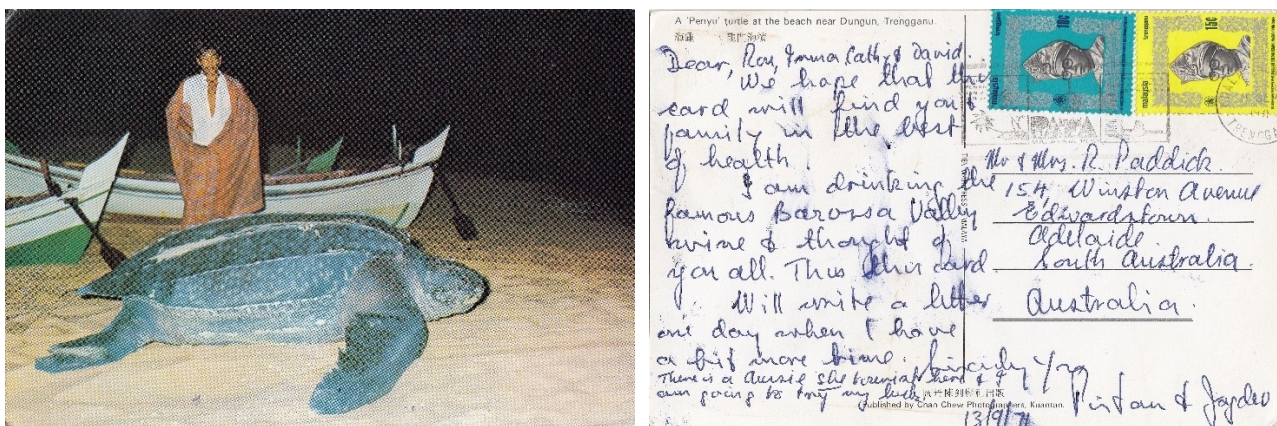 A 'Penyu' turtle at the beach near Dungun, Trengganu.
Dear, Roy, Emma, Cathy & David.
We hope that this
card will find your
family in the best
of health
I am drinking the
famous Barossa Valley
wine & thought of
you all. Thus this card.
Will write a letter
one day when I have
a bit more time.
There is a Aussie she tourist here & I
am going to try my luck
Sincerely Yrs
Published by Chan Chew Photographers, Kuantan.
13/9/71
malaysia
10c
malaysia
15c
Mr & Mrs. R. Paddick
154, Winston Avenue
Edwardstown.
Adelaide
South Australia.
Australia.